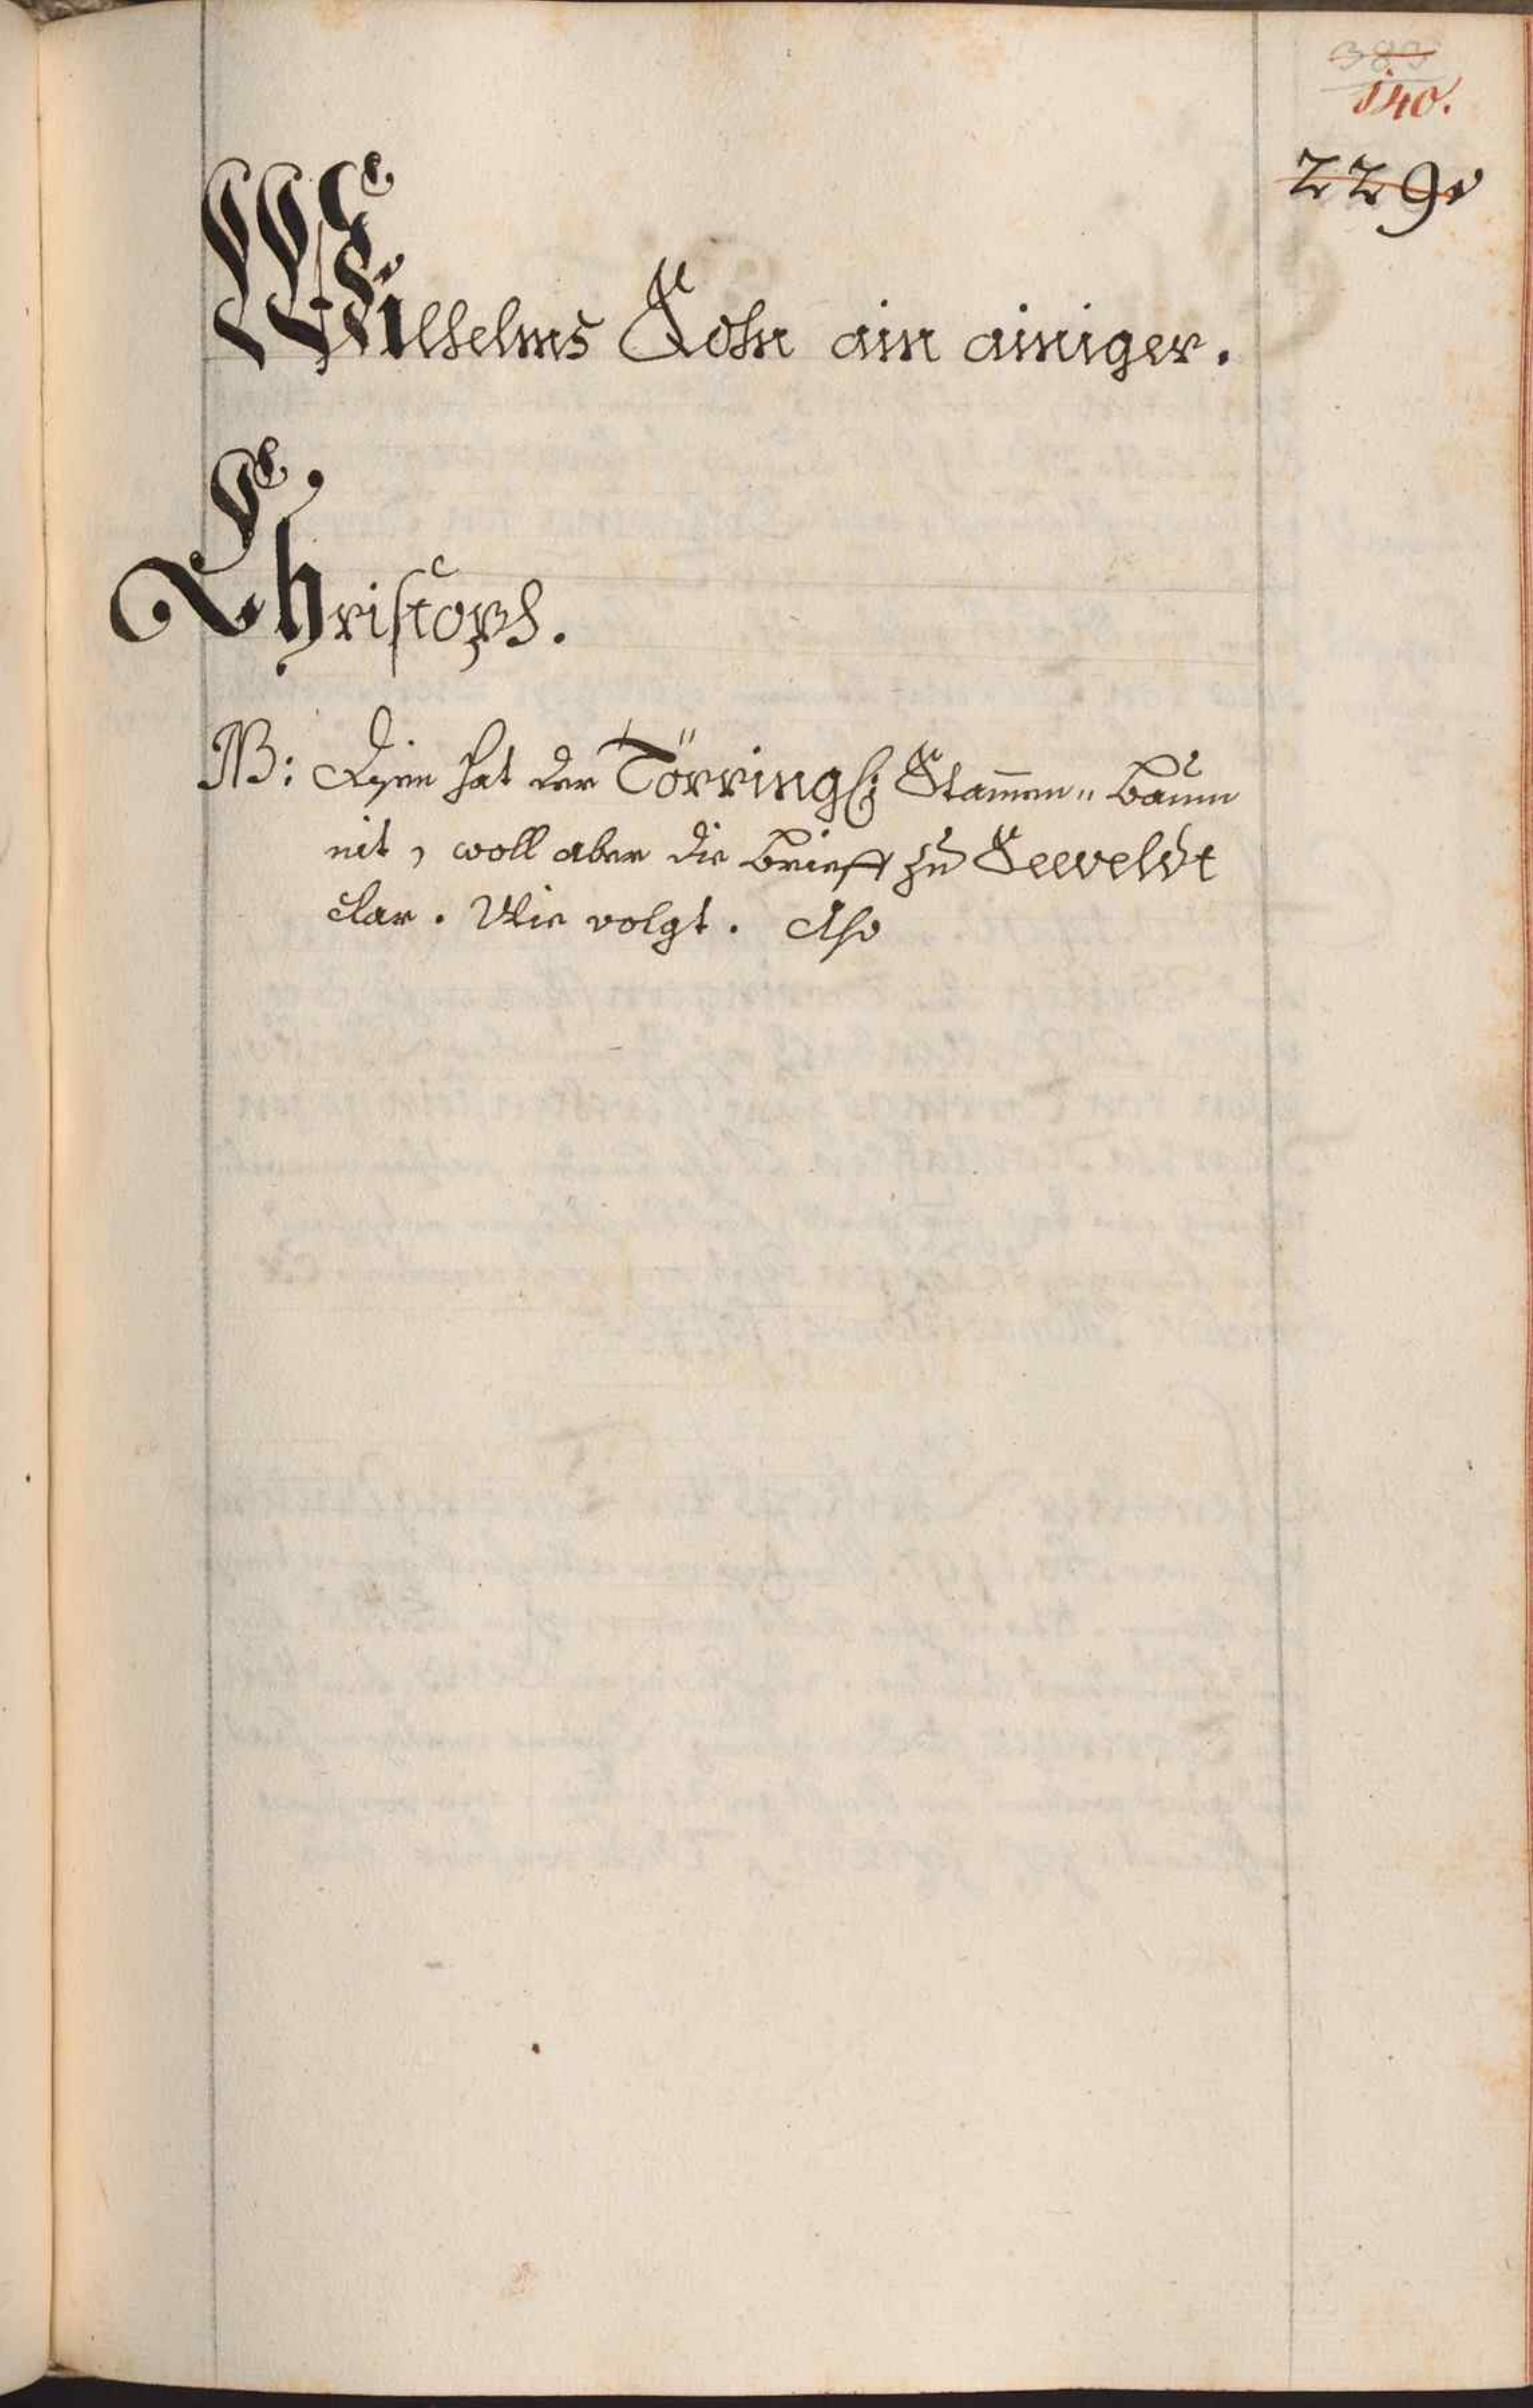 383
140.
229.
Wilhelms Sohn ain ainiger.
Christoph.
NB: Disen hat der Törringl: Stammen" Baum
nit, woll aber die Brieff zu Seeveldt
clar. Wie volgt. Also